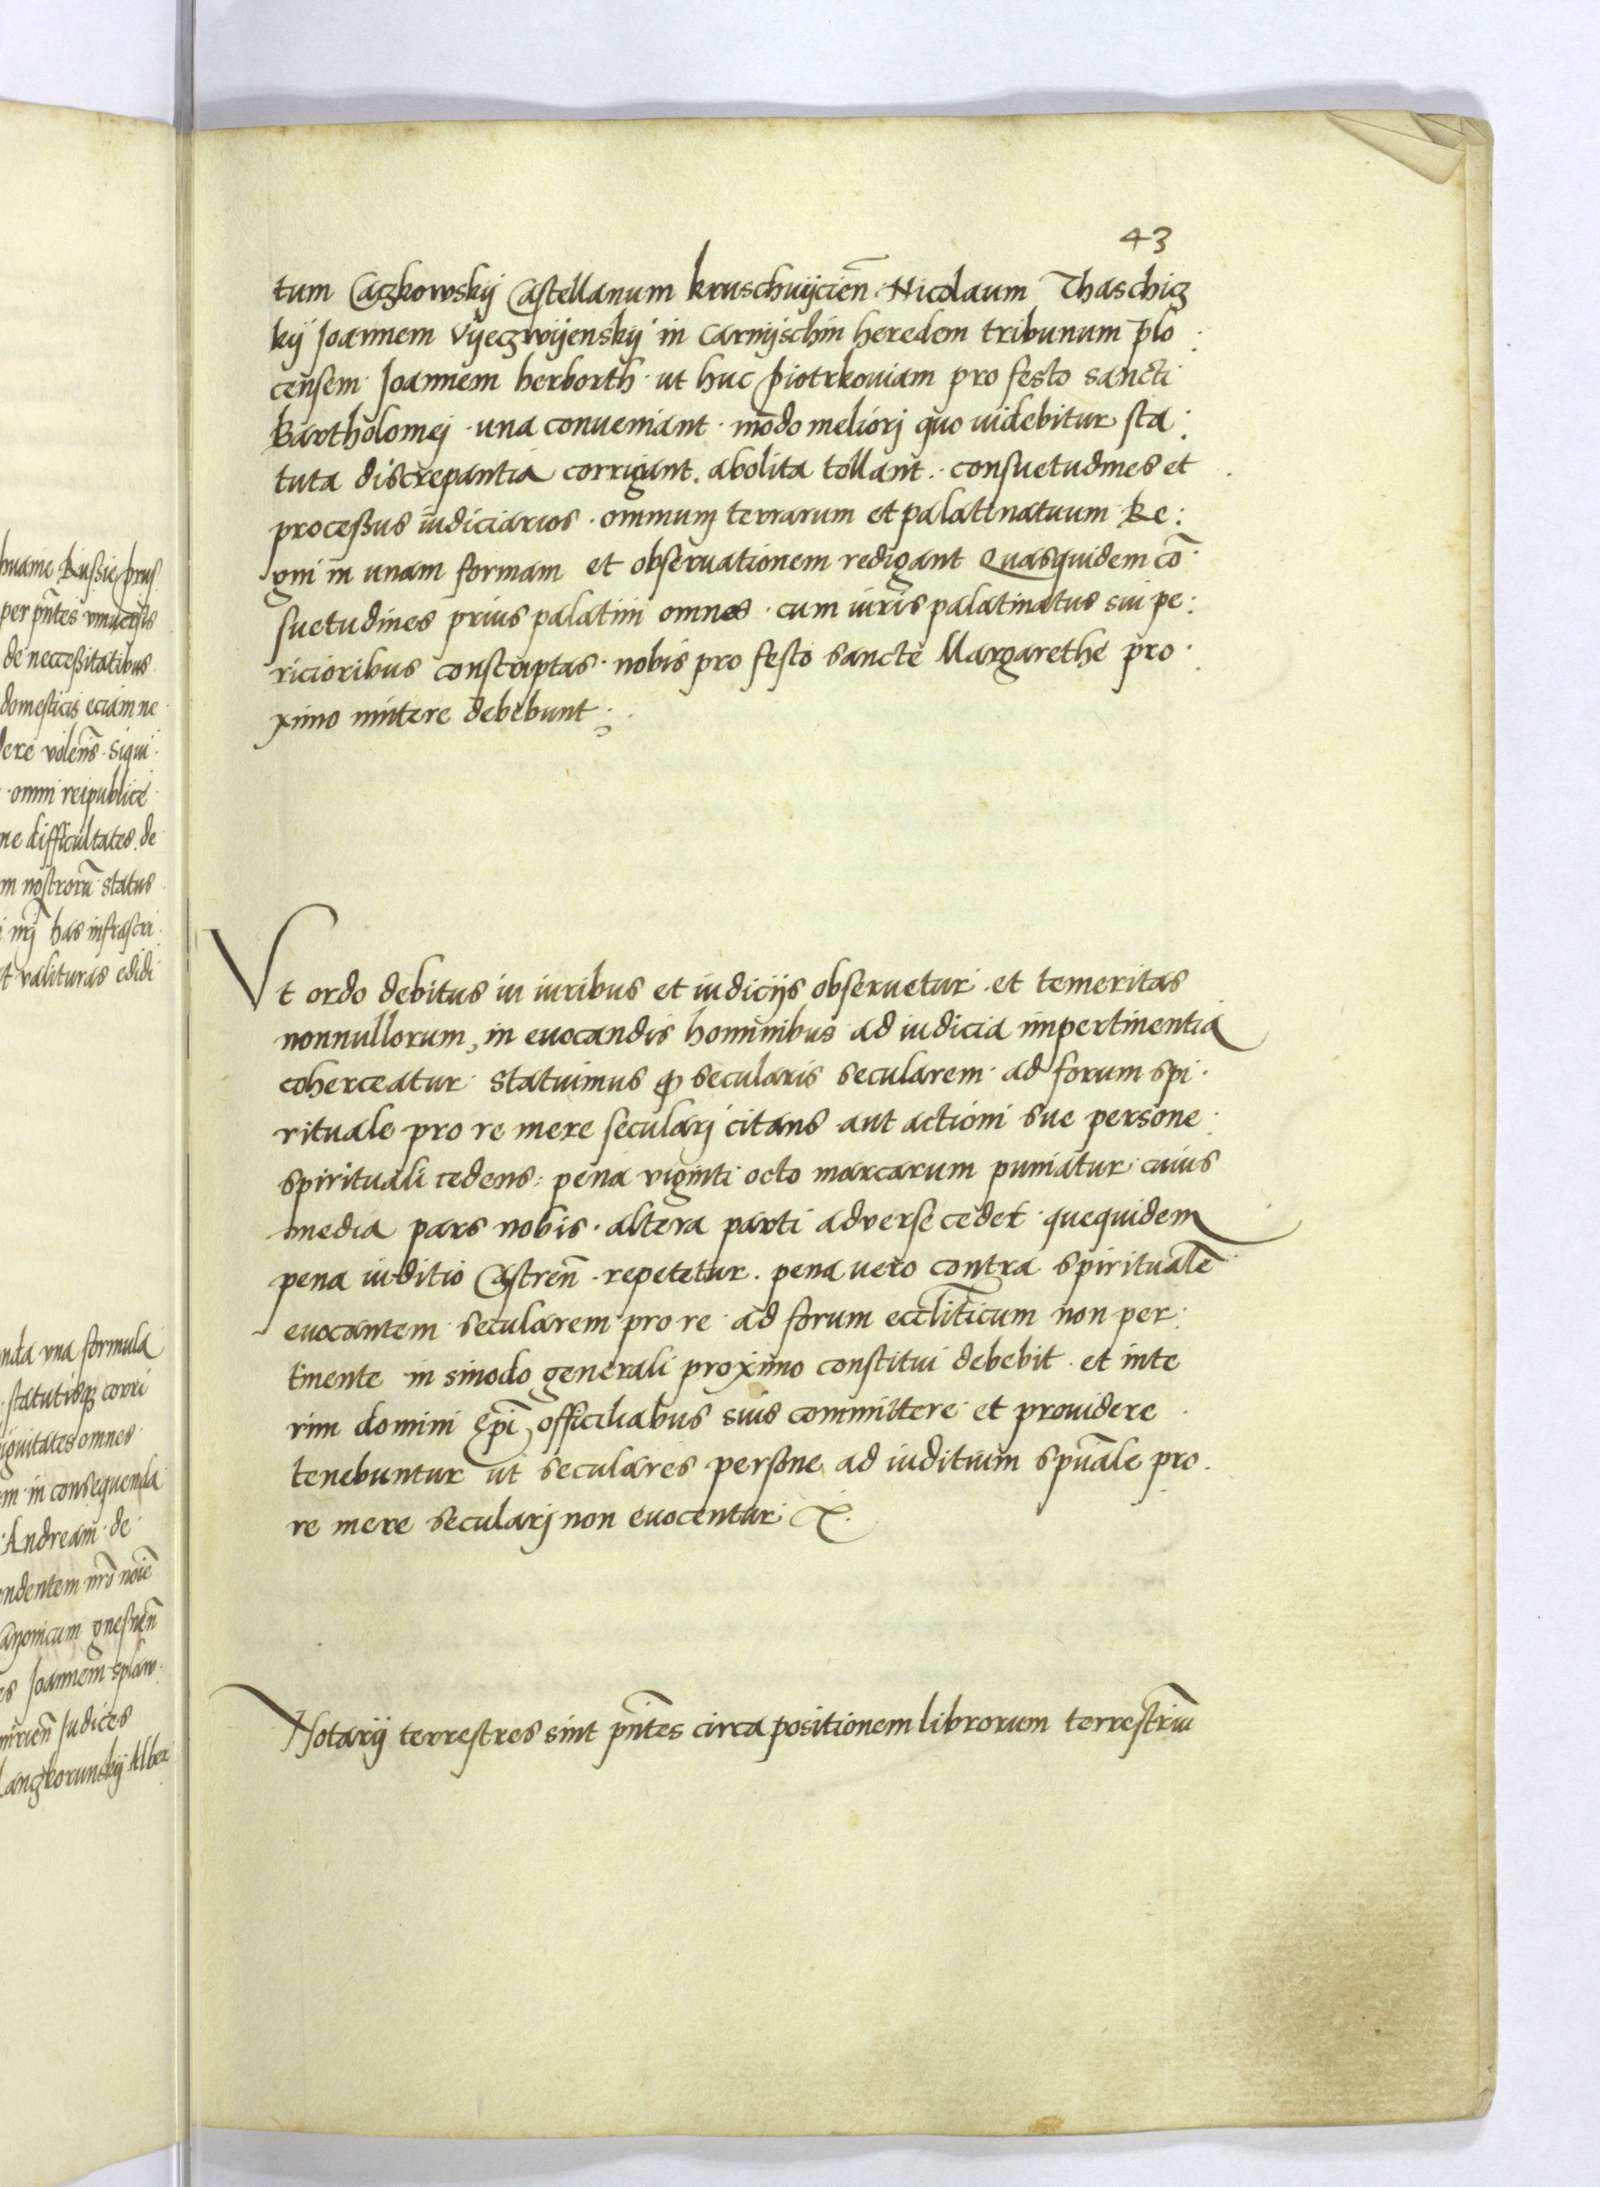 43
tum Caczkowskij Castellanum kruschvijcien̄ · Nicolaum Thaschicz
kij Joannem Vijeczwijenskij in Carnijschin heredem tribunum plo :
censem · Joannem herborth · ut huc piotrkoviam pro festo sancti
Bartholomej · una conveniant · modo meliorj quo uidebitur sta :
tuta discrepantia corrigant . abolita tollant . consuetudines et
processus iudiciarios · omnium terrarum et palatinatuum Re :
gni in unam formam et observationem redigant Quasquidem cō ·
suetudines prius palatini omnes · cum iuris palatinatus sui pe :
ricioribus conscriptas · nobis pro festo sancte Margarethe pro ·
ximo mittere debebunt ;
Vt ordo debitus in iuribus et iudicijs observetur · et temeritas
nonnullorum, in evocandis hominibus ad iudicia impertinentia
coherceatur · statuimus ꝙ secularis secularem · ad forum spi ·
rituale pro re mere secularj citans aut actioni sue persone
spirituali cedens : pena viginti octo marcarum puniatur · cuius
media pars nobis · altera parti adverse cedet · quequidem
pena iuditio Castren̄ · repetetur . pena vero contra spiritualē
evocantem secularem pro re ad forum eccliticum non per :
tinente in sinodo generali proximo constitui debebit · et inte
rim domini Ep̄i officialibus suis committere · et providere
tenebuntur ut seculares persone ad iuditium spūale pro ·
re mere secularj non evocentur ·
Notarij terrestres sint pn̄tes circa positionem librorum terrestriū
huanie Russie prus
per pn̄tes universis
de neccessitatibus
domesticis eciam ne
dere volens · siqui
omni reipublice
ne difficultates . de
m nostrorū status
has infrascri
t valituras edidi
nda una formula
statutisq corri
ignitates omnes
m in consequenda
Andream de
ondentem nr̄o noīe
anonicum gnesnen̄
es Joannem splaw
Judices
Langkorunskij Alber